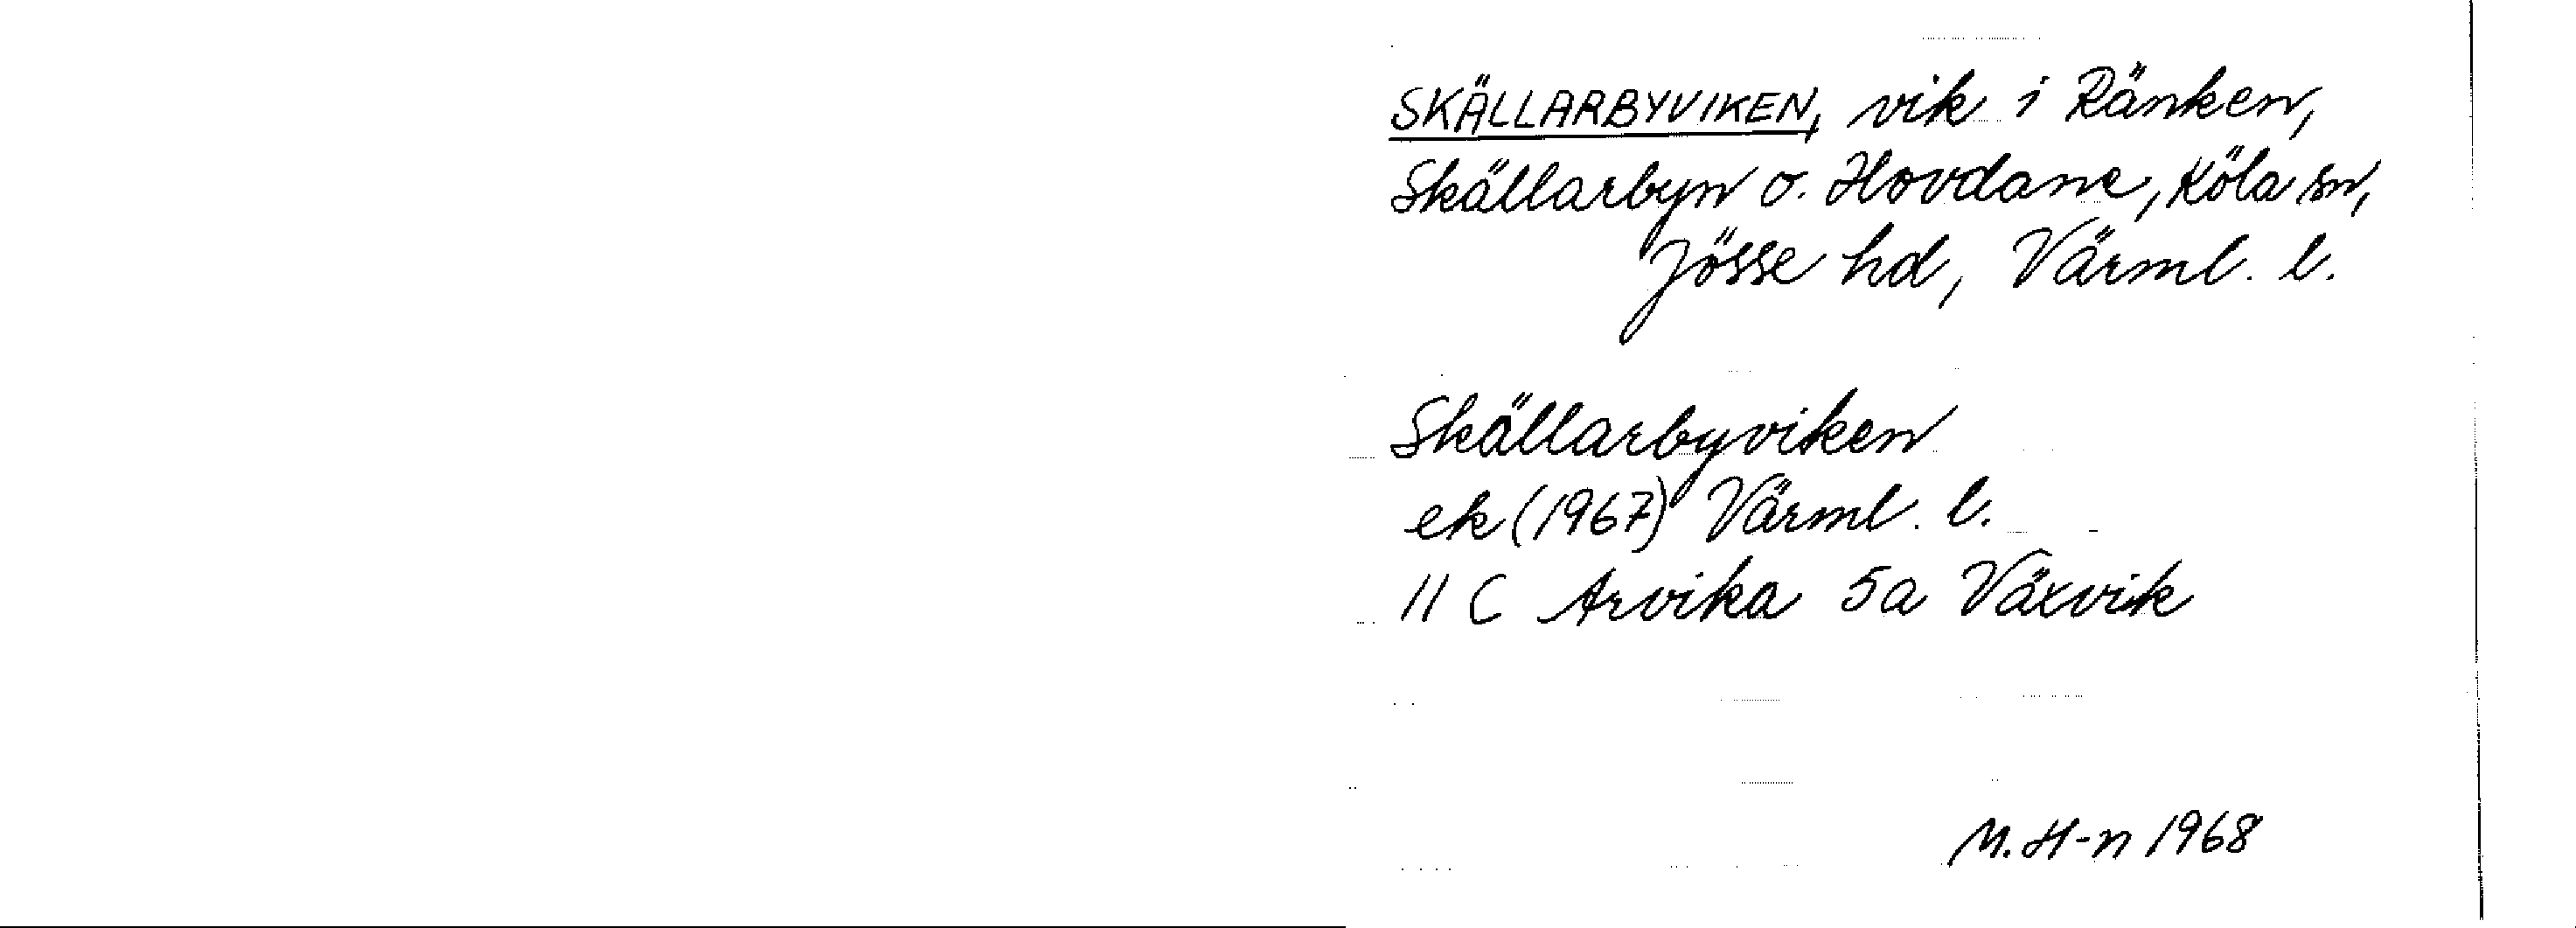 SKÄLLARBYVIKEN, vik i Ränken,
Skällarbyn o. Hovdane, Köla sn,
Jösse hd, Värml. l.
Skällarbyviken
ek (1967) Värml. l.
11 C Arvika 5a Växvik
M. H-n 1968